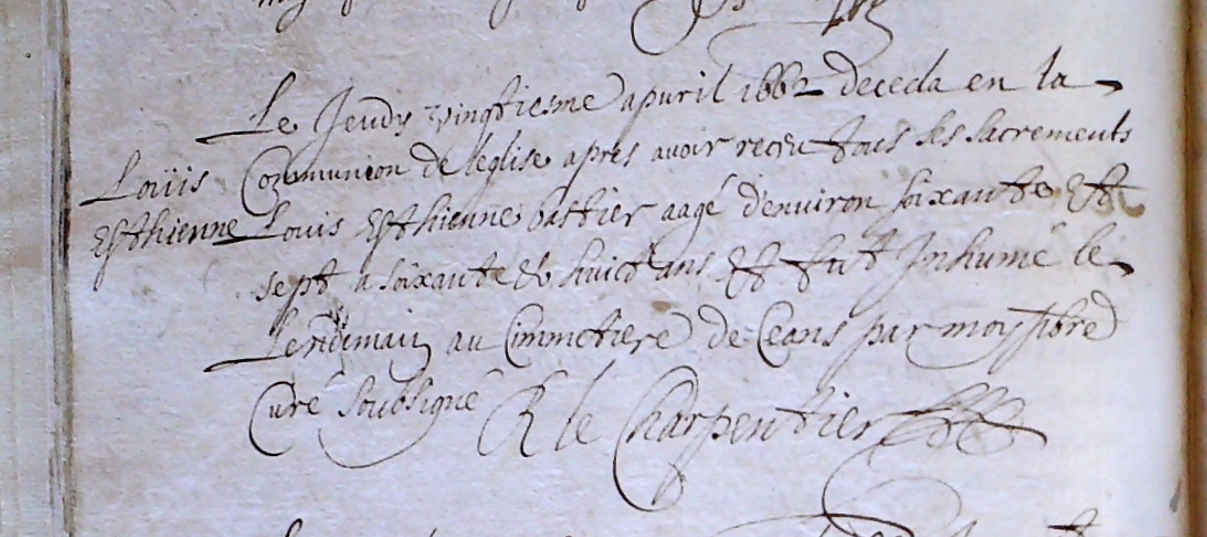 Le Jeudy vingtiesme apuril 1662 deceda en la
Louis
Communion de leglise apres auoir receu tous les sacrements
Esthienne
Louis Esthienne bastier aagé denuiron soixante et
sept a soixante et huict ans et fut Inhumé le
Lendemain au Cimmetiere de Ceans par moy pbre
Curé soubsigné R le Charpentier